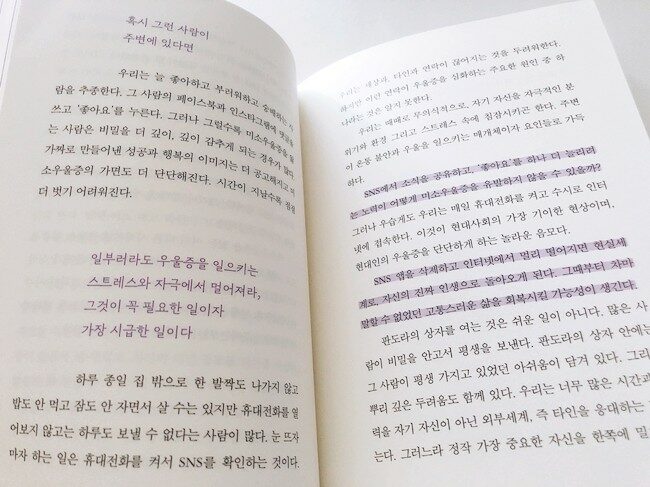 혹시 그런 사람이
주변에 있다면
우리는 늘 좋아하고 부러워하고 숭배하는 사
람을 추종한다. 그 사람의 페이스북과 인스타그램에 댓글을
쓰고 '좋아요'를 누른다. 그러나 그럴수록 미소우울증을 앓
는 사람은 비밀을 더 깊이, 깊이 감추게 되는 경우가 많다.
가짜로 만들어낸 성공과 행복의 이미지는 더 공고해지고 미
소우울증의 가면도 더 단단해진다. 시간이 지날수록 점점
더 벗기 어려워진다.
일부러라도 우울증을 일으키는
스트레스와 자극에서 멀어져라,
그것이 꼭 필요한 일이자
가장 시급한 일이다
하루 종일 집 밖으로 한 발짝도 나가지 않고
밥도 안 먹고 잠도 안 자면서 살 수는 있지만 휴대전화를 열
어보지 않고는 하루도 보낼 수 없다는 사람이 많다. 눈 뜨자
마자 하는 일은 휴대전화를 켜서 SNS를 확인하는 것이다.
우리는 세상과, 타인과 연락이 끊어지는 것을 두려워한다.
하지만 이런 연락이 우울증을 심화하는 주요한 원인 중 하
나라는 것은 알지 못한다.
우리는 때때로 무의식적으로, 자기 자신을 자극적인 분
위기와 환경 그리고 스트레스 속에 침잠시키곤 한다. 주변
이 온통 불안과 우울을 일으키는 매개체이자 요인들로 가득
하다.
SNS에서 소식을 공유하고, '좋아요'를 하나 더 늘리려
는 노력이 어떻게 미소우울증을 유발하지 않을 수 있을까?
그러나 우습게도 우리는 매일 휴대전화를 켜고 수시로 인터
넷에 접속한다. 이것이 현대사회의 가장 기이한 현상이며,
현대인의 우울증을 단단하게 하는 놀라운 음모다.
SNS 앱을 삭제하고 인터넷에서 멀리 떨어지면 현실세
계로, 자신의 진짜 인생으로 돌아오게 된다. 그때부터 차마
말할 수 없었던 고통스러운 삶을 회복시킬 가능성이 생긴다.
판도라의 상자를 여는 것은 쉬운 일이 아니다. 많은 사
람이 비밀을 안고서 평생을 보낸다. 판도라의 상자 안에는
그 사람이 평생 가지고 있었던 아쉬움이 담겨 있다. 그리
뿌리 깊은 두려움도 함께 있다. 우리는 너무 많은 시간과
력을 자기 자신이 아닌 외부세계, 즉 타인을 응대하는
는다. 그러느라 정작 가장 중요한 자신을 한쪽에 밀